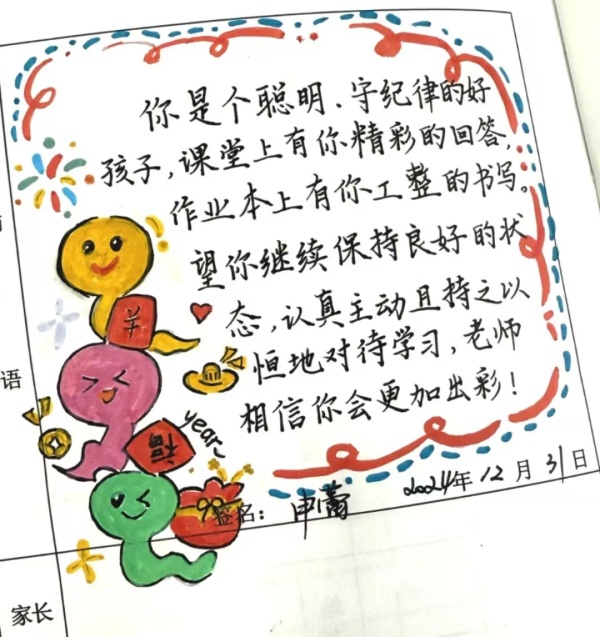 你是个聪明、守纪律的好
孩子,课堂上有你精彩的回答,
作业本上有你工整的书写。
望你继续保持良好的状
态,认真主动且持之以
恒地对待学习,老师
相信你会更加出彩!
语
羊
福
year~
2024年12月31日
签名: 申蕾
家长